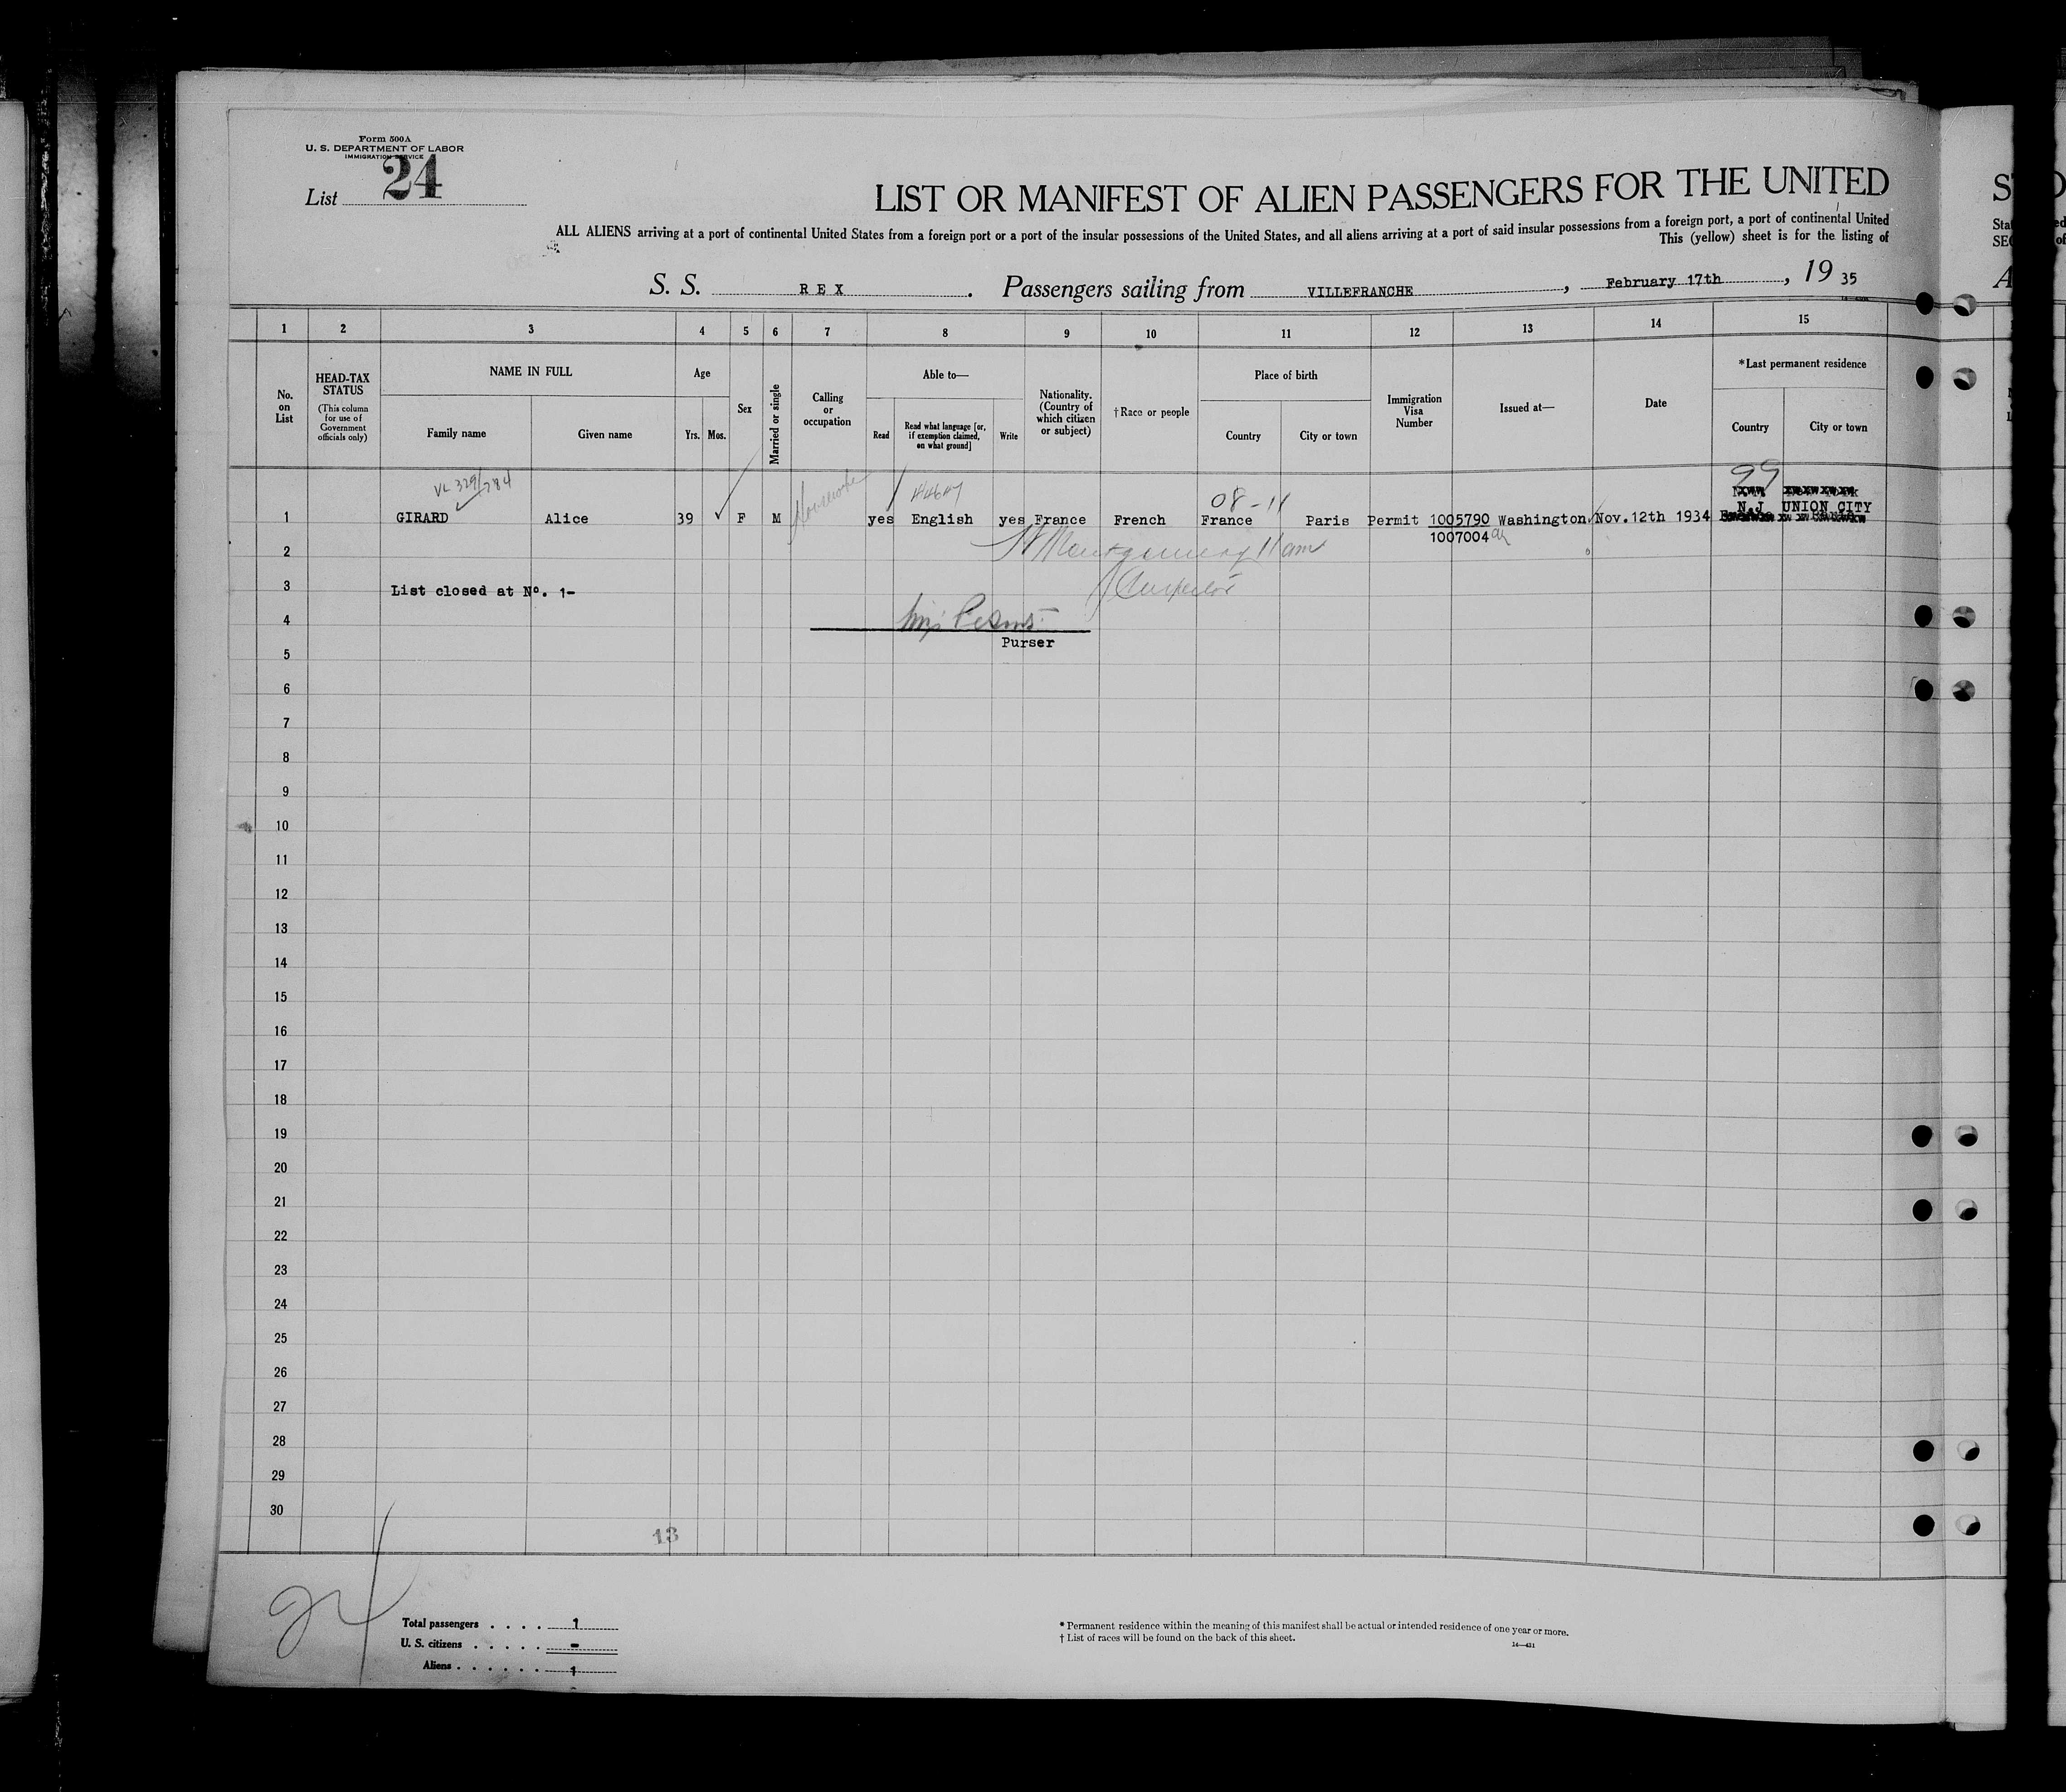 Form 500A
U. S. DEPARTMENT OF LABOR
IMMIGRATION SERVICE
List 24
LIST OR MANIFEST OF ALIEN PASSENGERS FOR THE UNITED
ALL ALIENS arriving at a port of continental United States from a foreign port or a port of the insular possessions of the United States, and all aliens arriving at a port of said insular possessions from a foreign port, a port of continental United
This (yellow) sheet is for the listing of
S. S. REX. Passengers sailing from VILLEFRANCHE, February 17th, 19 35
1 2 3 4 5 6 7 8 9 10 11 12 13 14 15
No. on List
HEAD-TAX STATUS
(This column for use of Government officials only)
NAME IN FULL
Family name Given name
Age
Yrs. Mos.
Sex
Married or single
Calling or occupation
Able to—
Read
Read what language [or, if exemption claimed, on what ground]
Write
Nationality. (Country of which citizen or subject)
†Race or people
Place of birth
Country City or town
Immigration Visa Number
Issued at—
Date
*Last permanent residence
Country City or town
VL 329/784
99
08-11
N.J. UNION CITY
1 GIRARD Alice 39 ✓ F M Housework yes English yes France French France Paris Permit 1005790 Washington Nov.12th 1934
1007004
2
3 List closed at Nº. 1-
4
Purser
5
6
7
8
9
10
11
12
13
14
15
16
17
18
19
20
21
22
23
24
25
26
27
28
29
30
13
24
Total passengers . . . . 1
U. S. citizens . . . . . -
Aliens . . . . . . 1
* Permanent residence within the meaning of this manifest shall be actual or intended residence of one year or more.
† List of races will be found on the back of this sheet.
14—431